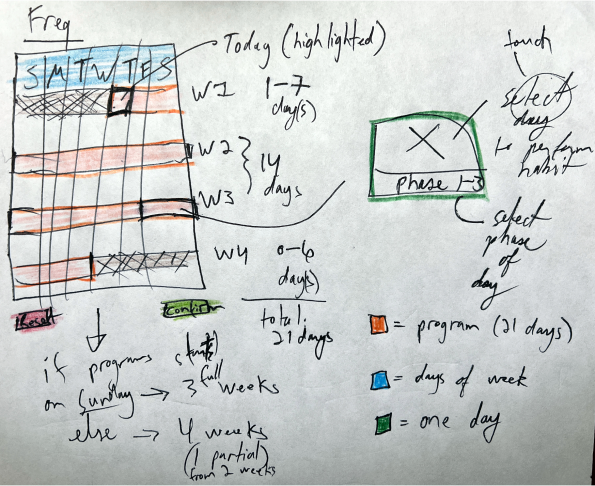 Freq
Today (highlighted)
S M T W T F S
W1 1-7
day(s)
W2
14
days
W3
W4 0-6
day(s)
total:
21 days
Reset
Confirm
if programs starts
on Sunday → 3 full weeks
else → 4 weeks
(1 partial)
from 2 weeks
touch
select
day
to perform
habit
X
phase 1-3
select
phase
of
day
= program (21 days)
= days of week
= one day